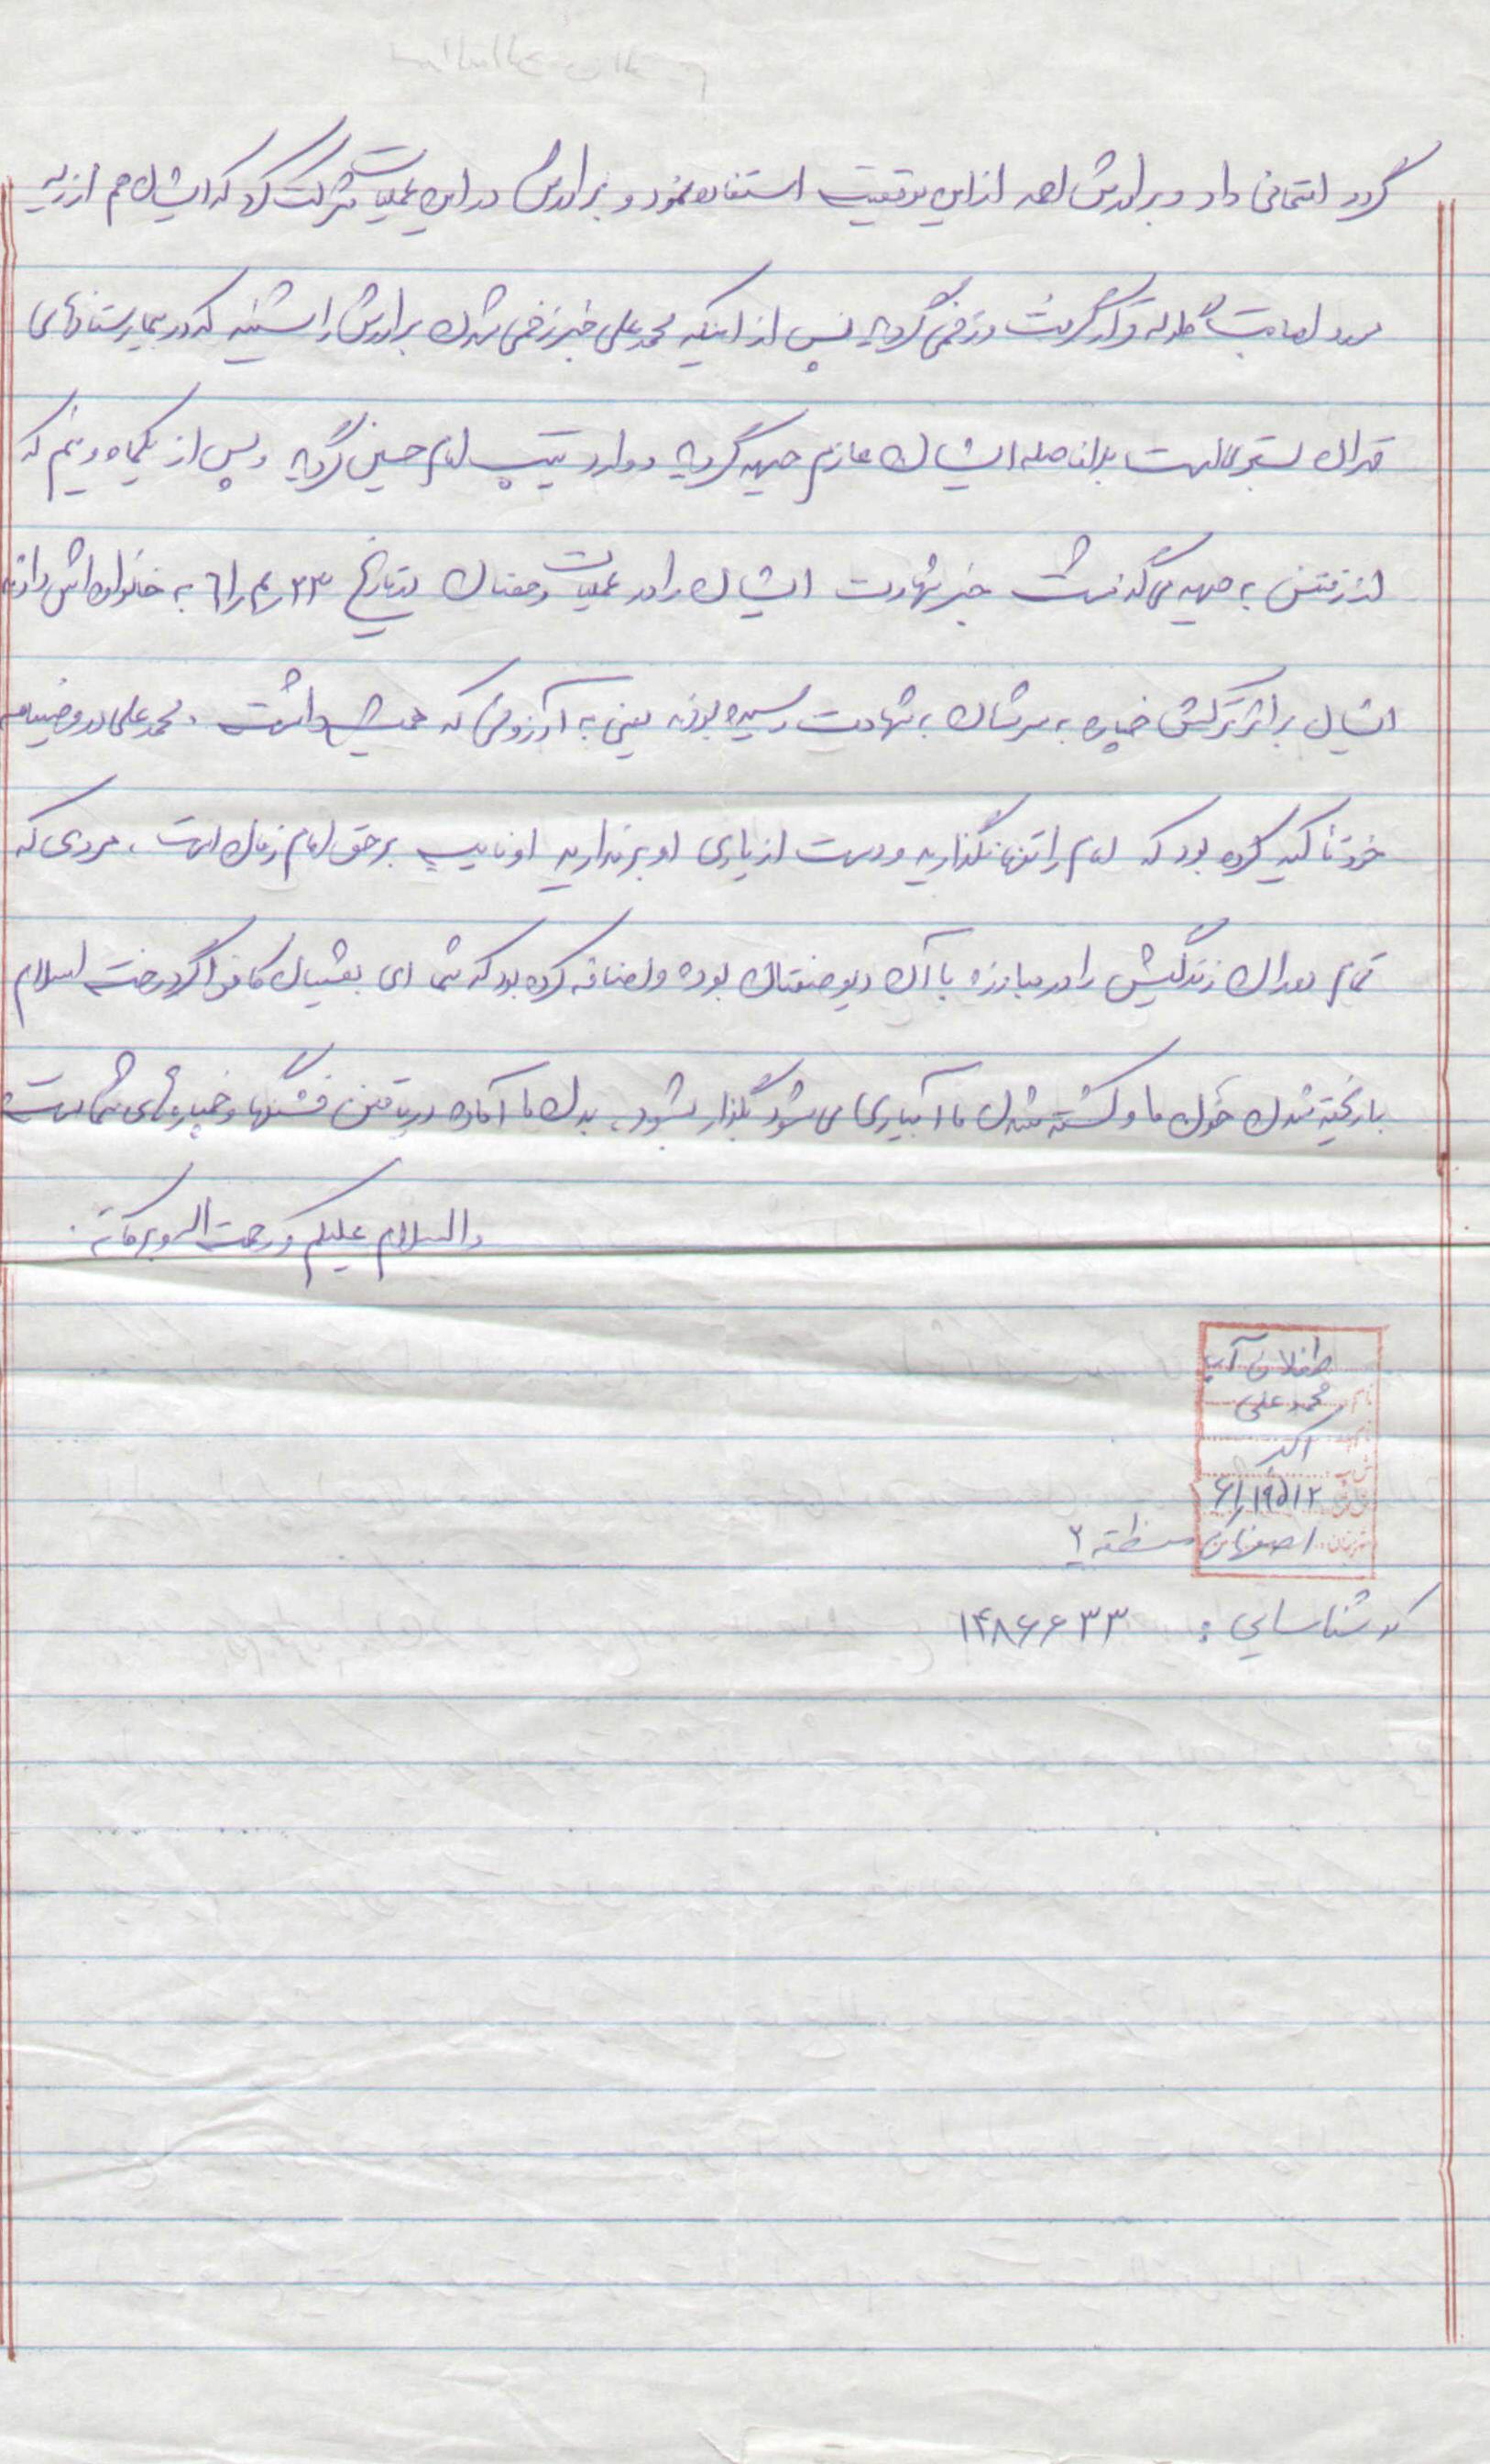 گردد امتحانی داد و برادرش احمد از این موقعیت استفاده نمود و برادرش در این عملیات شرکت کرد که ایشان هم از ناحیه
مورد اصابت گلوله قرار گرفت و زخمی گردید پس از اینکه محمد علی خبر زخمی شدن برادرش را شنید که در بیمارستانهای
تهران بستری است بلافاصله ایشان عازم جبهه گردید و وارد تیپ امام حسین گردید و پس از یکماه و نیم که
از رفتنش به جبهه می گذشت خبر شهادت ایشان را در عملیات رمضان بتاریخ ۲۳ر۴ر۶۱ به خانواده اش دادند
ایشان بر اثر ترکش خمپاره به سرشان به شهادت رسیده بودند یعنی به آرزوئی که همیشه داشت . محمد علی در وصیتنامه
خود تأکید کرده بود که امام را تنها نگذارید و دست از یاری او برندارید او نایب برحق امام زمان است ، مردی که
تمام دوران زندگیش را در مبارزه با آن دیو صفتان بوده و اضافه کرده بود که شما ای بعثیان کافر اگر درخت اسلام
با ریخته شدن خون ما و کشته شدن ما آبیاری می شود بگذار بشود ، بدن ما آماده دریافتن فشنگها و خمپاره های شماست
والسلام علیکم و رحمت الله و برکاته .
طفلان آب
نام محمد علی
اکبر
۶۱ر۱۹۵۱۲
شهرستان اصفهان منطقه ۲
کد شناسایی : ۱۴۸۶۶۳۳